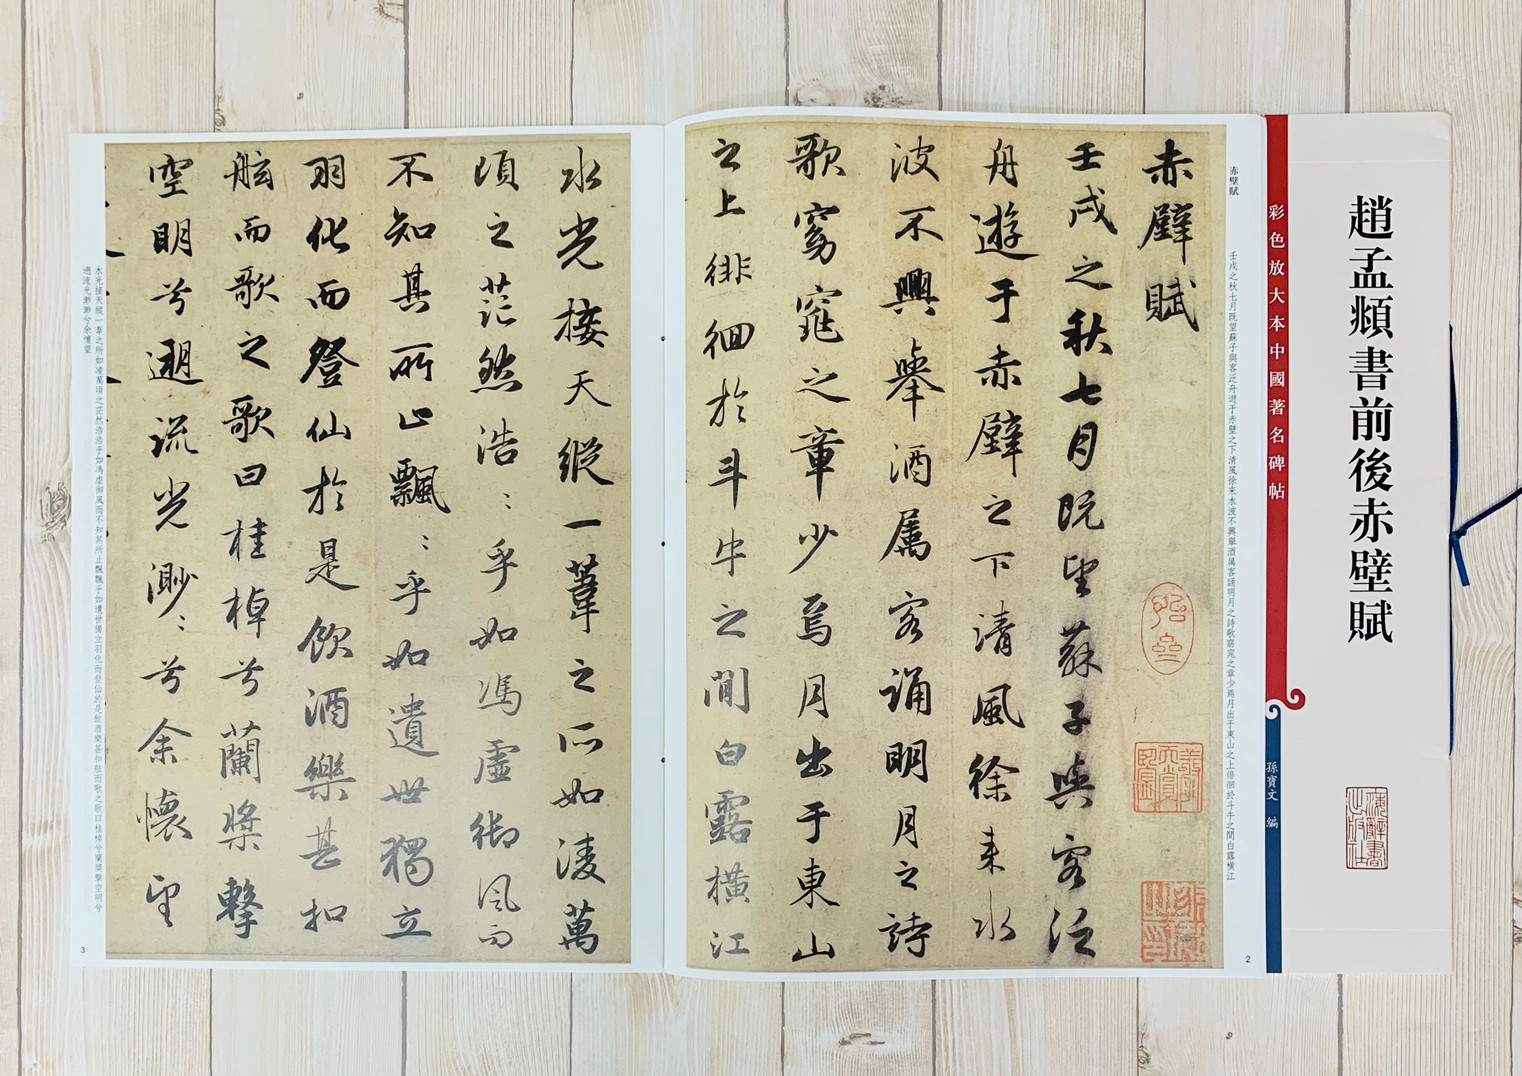 趙孟頫書前後赤壁賦
彩色放大本中國著名碑帖
孫寶文 編
赤壁賦
壬戌之秋七月既望蘇子與客泛舟遊于赤壁之下清風徐來水波不興舉酒屬客誦明月之詩歌窈窕之章少焉月出于東山之上徘徊於斗牛之間白露橫江
赤壁賦
壬戌之秋七月既望蘇子與客泛
舟遊于赤壁之下清風徐来水
波不興舉酒属客誦明月之詩
歌窈窕之章少焉月出于東山
之上徘徊於斗牛之間白露橫江
2
水光接天縱一葦之所如淩萬
頃之茫然浩：乎如馮虛御風而
不知其所止飄：乎如遺世獨立
羽化而登仙於是飲酒樂甚扣
舷而歌之歌曰桂棹兮蘭槳擊
空明兮遡流光渺：兮余懷望
水光接天縱一葦之所如凌萬頃之茫然浩浩乎如馮虛御風而不知其所止飄飄乎如遺世獨立羽化而登仙於是飲酒樂甚扣舷而歌之歌曰桂棹兮蘭槳擊空明兮
遡流光渺渺兮余懷望
3